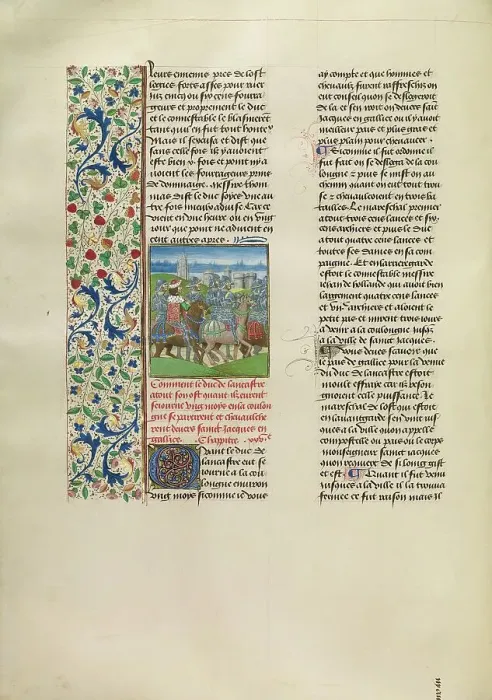 leurs ennemis pres de lost
logies fors assez pour ruer
jus cincq ou six cens fourra
geurs et proprement le duc
et le connestable le blasmerent
tant qui en fut tout honteux
Mais il sexcusa et dist que
sans celle fois ilz y avoient
este bien v. fois et point ny a
voient les fourrageurs prins
de dommaige. Messire thom
mas dist le duc soyes une au
tre fois mieulx advise. Car ce
vient en une heure ou en ung
jour que point ne advient en
cent autres apres.
Comment le duc de lancastre
atout son ost quant ilz eurent
sejourne ung moys en la coulon
gne se partirent et chevauche
rent devers saint Jacques en
gallice. Chapitre
Quant le duc de
lancastre eut se
journe a la cou
longne environ
ung moys si comme je vous
ay compte et que hommes et
chevaulx furent raffreschis on
eut conseil quon se deslogeroit
de la et sen iroit on devers saint
Jacques en gallice ou il y avoit
meilleur pais et plus gras et
plus plain pour chevaucer.
Si comme il fut ordonne il
fut fait on se desloga de la cou
longne et puis se mist on au
chemin quant on eut tout trou
se et chevaulcoient en trois ba
tailles. Le mareschal premier
atout trois cens lances et six
cens archiers et puis le duc
atout quatre cens lances et
toutes ses dames en sa com
paignie. Et en larrieregarde
estoit le connestable messire
jehan de hollande qui avoit bien
largement quatre cens lances
et archiers et aloient le
petit pas et mirent trois jours
a venir a la coulongne jusques
a la ville de saint Jacques.
Vous devez scavoir que
le pais de gallice pour la venue
du duc de lancastre estoit
moult effraye car ilz reson
gnoient celle puissance. Le
mareschal de lost qui estoit
en lavantgarde sen vint jus
ques a la ville quon appelle
compostelle ou pais ou le corps
monseigneur saint jacques
quon requiert de si loing gist
et est. Quant il fut venu
jusques a la ville il la trouva
fermee ce fut raison mais il